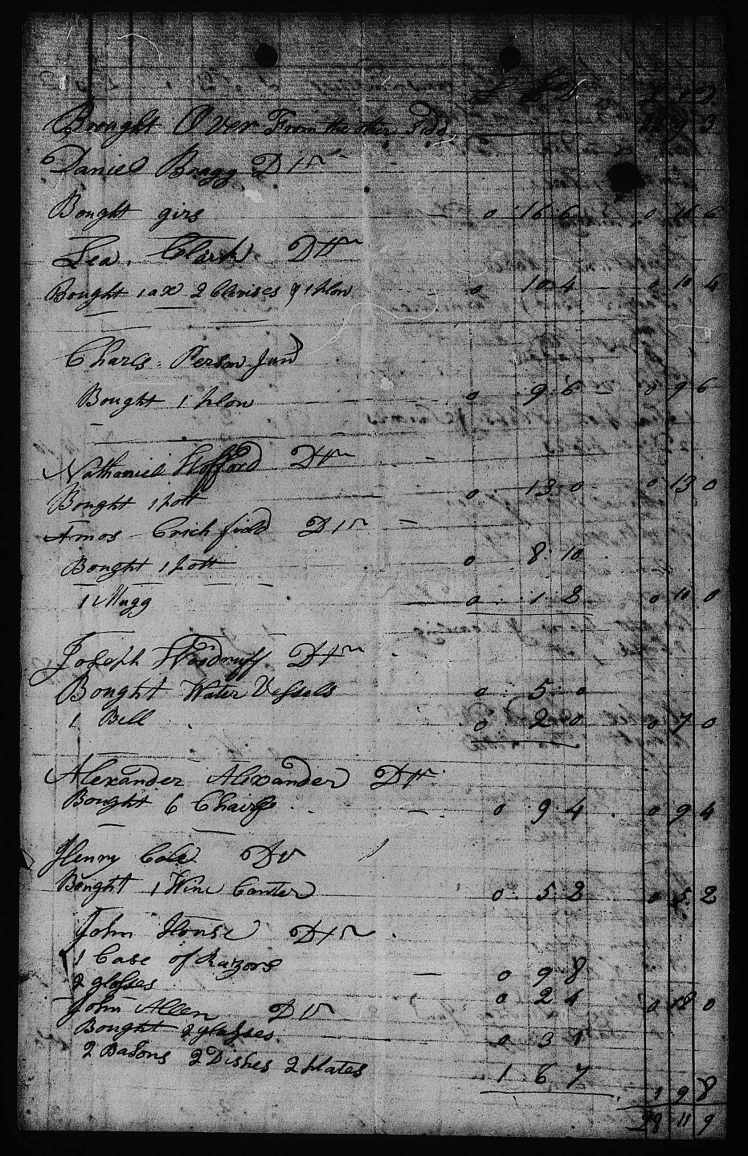 £ S D £ S D
Brought Over From the other Side 9 3
Daniel Bragg Dtr
Bought girs 0 16 6 0 16 6
Lea. Clark Dtr
Bought 1 ax 2 Clevises & 1 plow 0 10 4 0 10 4
Charls Person Jund
Bought 1 plow 0 9 6 0 9 6
Nathaniel Hofford Dtr
Bought 1 pott 0 13 0 0 13 0
Amos Crichfield Dtr
Bought 1 pott 0 8 10
1 Mugg 0 1 2 0 10 0
Joseph Woodruff Dtr
Bought Water Vessels 0 5 0
1 Bell 0 2 0 0 7 0
Alexander Alexander Dtr
Bought 6 Chairs 0 9 4 0 9 4
Henry Cole Dtr
Bought 1 Wine Canter 0 5 2 0 5 2
John House Dtr
1 Case of Razors 0 9 8
2 glasses 0 2 4 0 12 0
John Allen Dtr
Bought 2 glasses 0 3 1
2 Basons 2 Dishes 2 plates 1 6 7
1 9 8
29 11 9